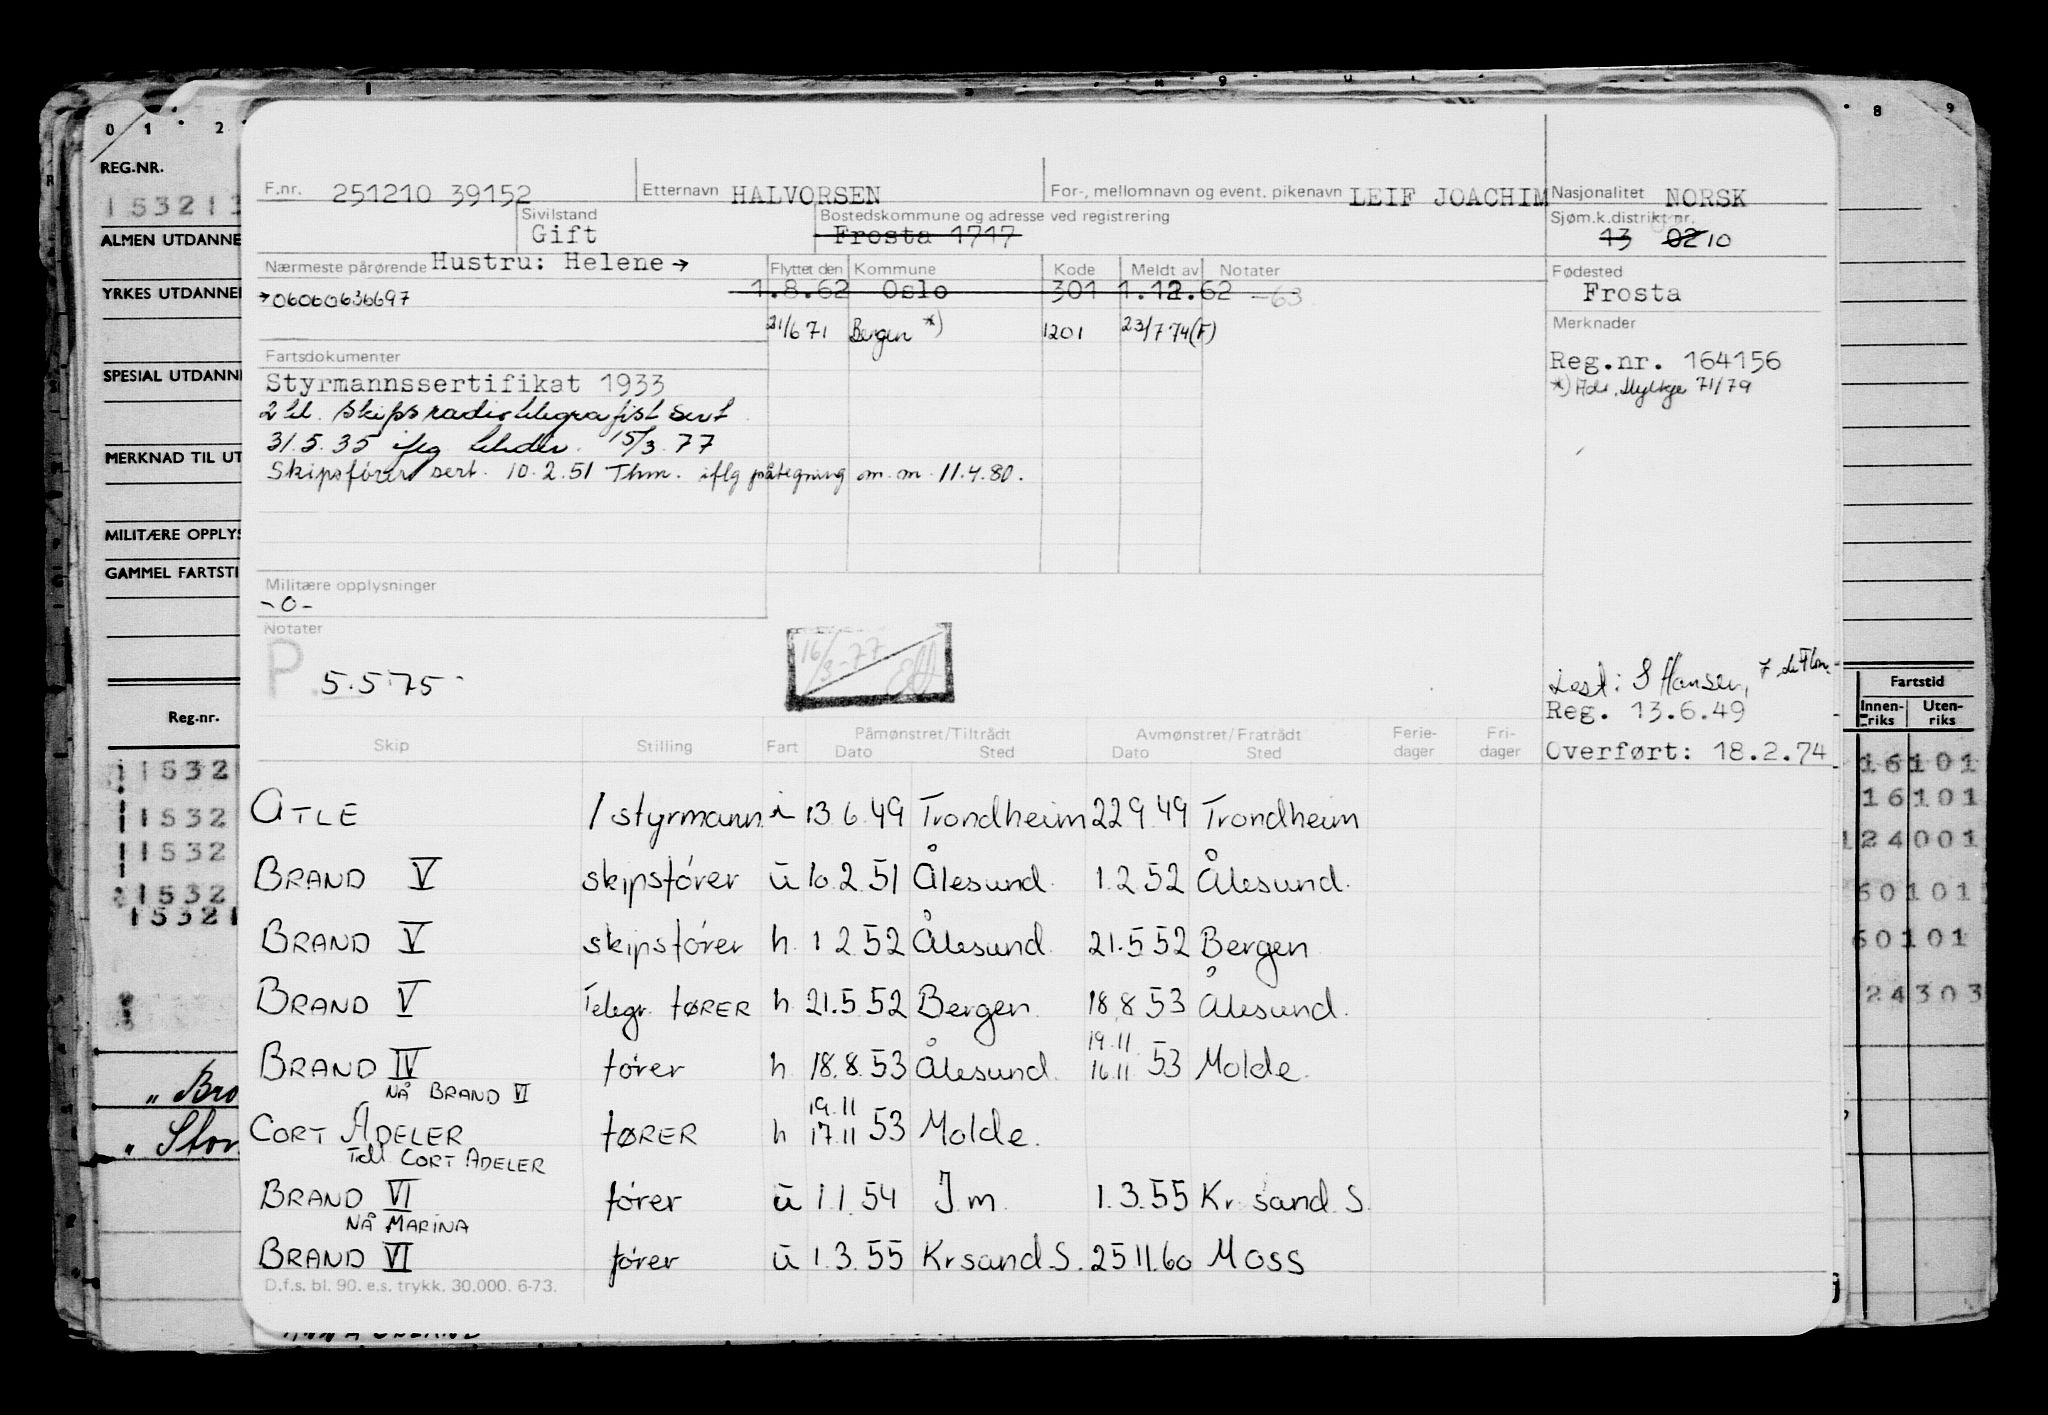 0 1 2 8 9
REG.NR.
ALMEN UTDANNE
YRKES UTDANNE
SPESIAL UTDANNE
MERKNAD TIL UT
MILITÆRE OPPLYS
GAMMEL FARTSTI
Reg.nr.
11532
1532
1532
1532
15321
„ Bro
„ Stor
F.nr. 251210 39152 Etternavn HALVORSEN For-, mellomnavn og event. pikenavn LEIF JOACHIM Nasjonalitet NORSK
Sivilstand Gift Bostedskommune og adresse ved registrering Frosta 1717 Sjøm.k.distrikt nr. 13 02 10
Nærmeste pårørende Hustru: Helene → Flyttet den Kommune Kode Meldt av Notater Fødested
→ 06060636697 1.8.62 Oslo 301 1.12.62 -63 Frosta
21/6 71 Bergen *) 1201 23/7 74 (F) Merknader
Fartsdokumenter Reg.nr. 164156
Styrmannssertifikat 1933 *) Adr. 71/79
2 kl. skipsradiotelegrafist sert
31.5.35 iflg 15/3.77
Skipsfører sert. 10.2.51 Thm. iflg påtegning om. m. 11.4.80.
Militære opplysninger
-0-
Notater
P. 5.5.75 16/3-77
S Hansen,
Reg. 13.6.49
Overført: 18.2.74
Skip Stilling Fart Påmønstret/Tiltrådt Dato Sted Avmønstret/Fratrådt Dato Sted Ferie-dager Fri-dager
ATLE 1 styrmann i 13 6.49 Trondheim 22 9.49 Trondheim
BRAND V skipsfører u 10.2.51 Ålesund. 1.2.52 Ålesund.
BRAND V skipsfører h. 1 2.52 Ålesund. 21.5.52 Bergen
BRAND V Telegr. FØRER h. 21.5.52 Bergen. 18.8 53 Ålesund.
19.11
BRAND IV fører h 18.8.53 Ålesund. 16.11 53 Molde.
NÅ BRAND VI
19.11
CORT ADELER FØRER h 17.11 53 Molde.
Tidl CORT ADELER
BRAND VI fører u 1.1.54 J m. 1.3.55 Kr. sand. S.
NÅ MARINA
BRAND VI fører u 1.3.55 Kr sand. S. 25 11.60 Moss
D.f.s. bl. 90. e.s. trykk. 30.000. 6-73.
Fartstid
Innen-riks Uten-riks
16101
16101
124001
60101
60101
24303